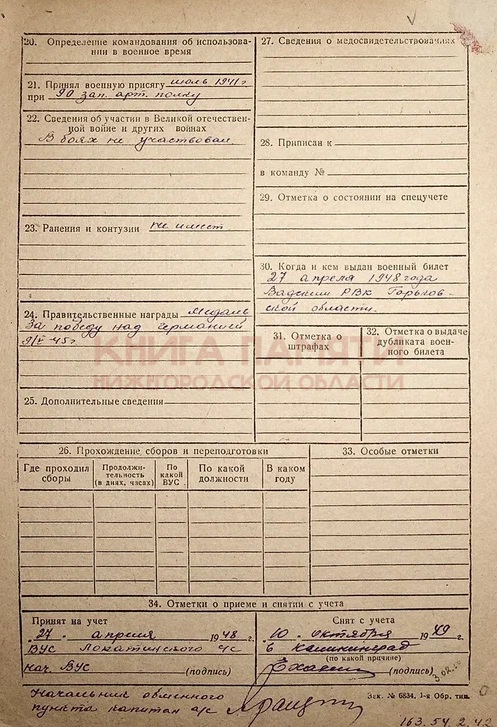 20. Определение командования об использова-
нии в военное время
21. Принял военную присягу июль 1941 г
при 90 зап. арт. полку
22. Сведения об участии в Великой отечествен-
ной войне и других войнах
В боях не участвовал
23. Ранения и контузии не имеет
24. Правительственные награды Медаль
За победу над Германией
25. Дополнительные сведения
27. Сведения о медосвидетельствованиях
28. Приписан к
в команду №
29. Отметка о состоянии на спецучете
30. Когда и кем выдан военный билет
27 апреля 1948 года
Вадским РВК Горьков-
ской области.
31. Отметка о
штрафах
32. Отметка о выдаче
дубликата воен-
ного билета
КНИГА ПАМЯТИ
НИЖЕГОРОДСКОЙ ОБЛАСТИ
26. Прохождение сборов и переподготовки
Где проходил
сборы
Продолжи-
тельность
(в днях, часах)
По
какой
ВУС
По какой
должности
В каком
году
33. Особые отметки
34. Отметки о приеме и снятии с учета
Принят на учет
27. апреля 1948 г.
ВУС
Нач. ВУС (подпись)
Снят с учета
10 октября 1949 г.
в Калининград
(по какой причине)
(подпись)
Начальник
пункта капитан а/с
Зак. № 6834. Обр. тип.
163.54.2.42